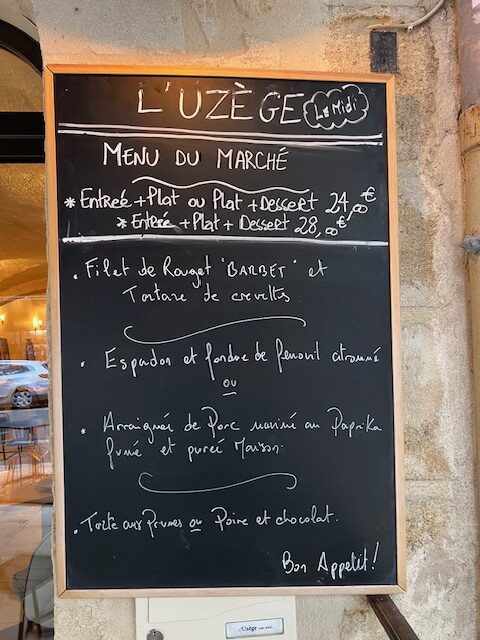 L'UZÈGE Le Midi
MENU DU MARCHÉ
* Entreé + Plat ou Plat + Dessert 24,00€
* Entreé + Plat + Dessert 28,00€
. Filet de Rouget "BARBET" et
Tartare de crevettes
. Espadon et fondue de fenouil citronné
ou
. Arraignée de Porc mariné au Paprika
fumé et pureé Maison.
. Tarte aux Prunes ou Poire et chocolat.
Bon Appetit!
Uzège